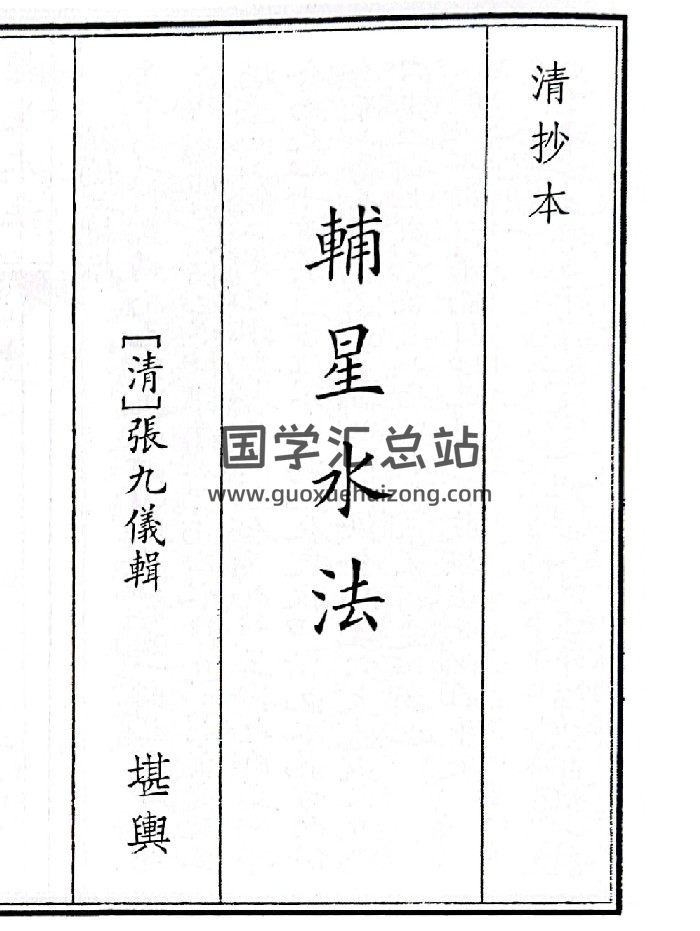 清抄本
輔星水法
［清］張九儀輯
堪輿
国学汇总站
www.guoxuehuizong.com